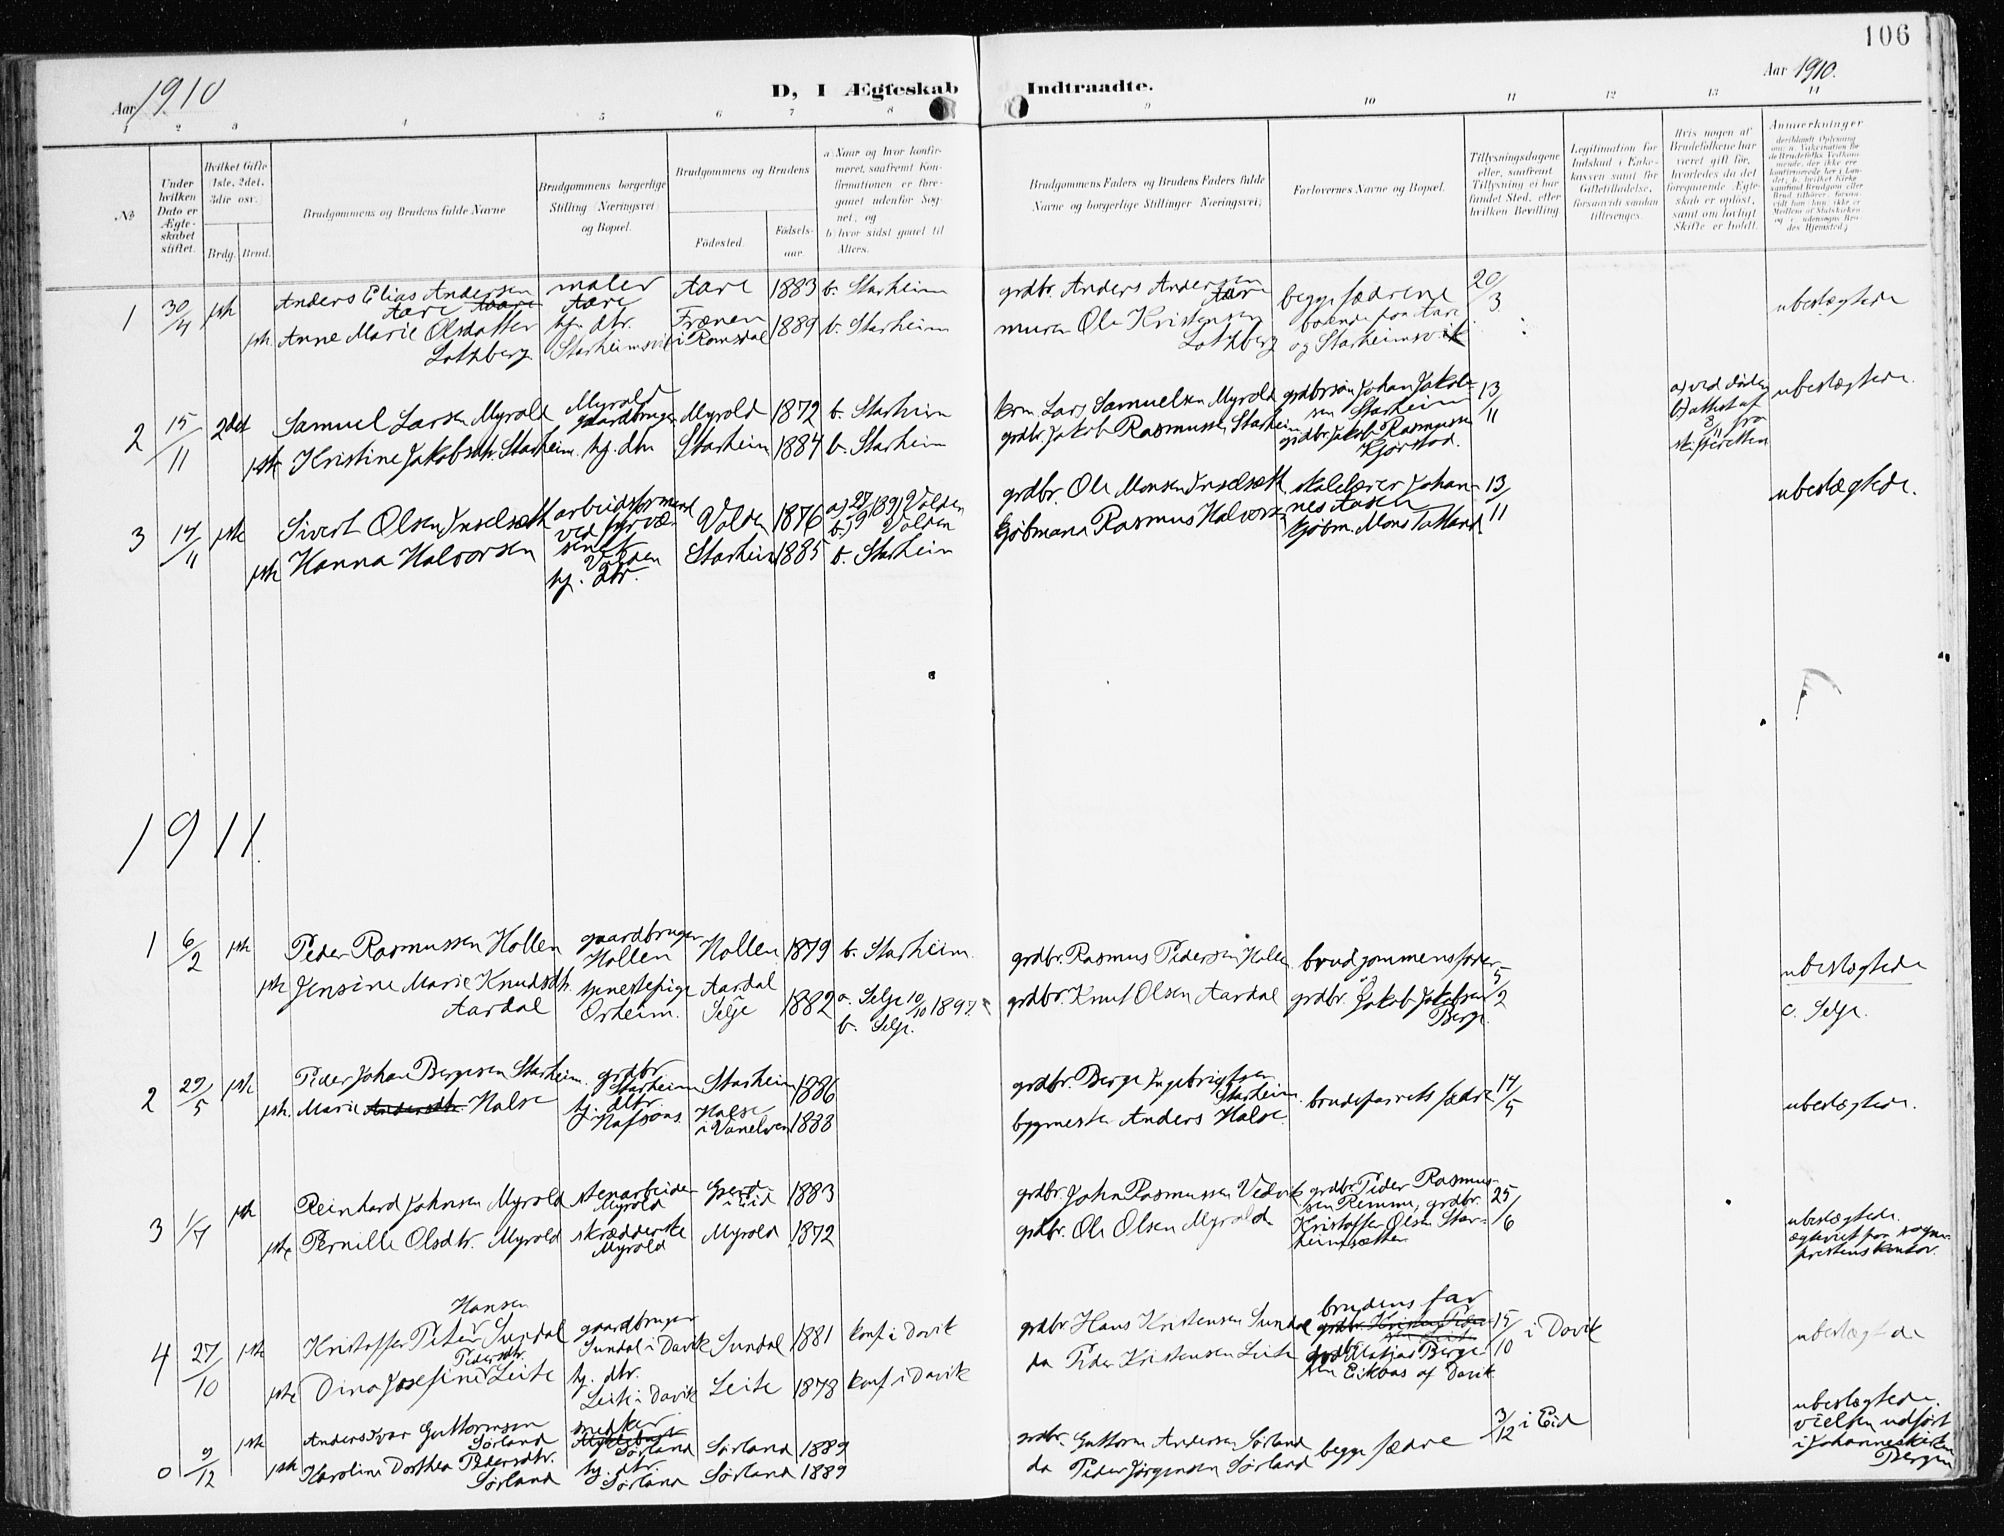 106
Aar 1910
D, I Ægteskab Indtraadte.
Aar 1910.
1 2 3 4 5 6 7 8 9 10 11 12 13 14
No
Under hvilken Dato er Ægteskabet stiftet.
Hvilket Gifte 1ste, 2det, 3die osv.
Brdg. Brud.
Brudgommens og Brudens fulde Navne
Brudgommens borgerlige Stilling (Næringsvei) og Bopæl.
Brudgommens og Brudens
Fødested.
Fødselsaar
a) Naar og hvor konfirmeret, saafremt Konfirmationen er foregaaet udenfor Sognet, og
b) hvor sidst gaaet til Alters.
Brudgommens Faders og Brudens Faders fulde Navne og borgerlige Stillinger (Næringsvei)
Forlovernes Navne og Bopæl.
Tillysningsdagene eller, saafremt Tillysning ei har fundet Sted, efter hvilken Bevilling
Legitimation for Indskud i Enkekassen samt for Giftetilladelse, forsaavidt saadan tiltrænges.
Hvis nogen af Brudefolkene har været gift før, hvorledes da det foregaaende Ægteskab er opløst, samt om lovligt Skifte er holdt.
Anmerkninger
1 30/4 1ste Anders Elias Andersen Aare maler Aare Aare 1883 b. Starheim grdbr. Anders Andersen Aare begge fædrene 20/3 ubeslægtede
1ste Anne Marie Olsdatter Lothberg hj. dtr. Starheimsvik Frænen i Romsdal 1889 b. Starheim murer Ole Kristensen Lothberg boende paa Aare og Starheimsvik
2 15/11 2det Samuel Larsen Myrold Myrold gaardbruger Myrold 1872 b. Starheim krm. Lars Samuelsen Myrold grdbrsøn Johan Jakobsen Starheim 13/11 a) ved døden b) attest af fra skifteretten ubeslægtede.
1ste Kristine Jakobsdtr. Starheim hj. dtr Starheim 1884 b. Starheim grdbr. Jakob Rasmussen Starheim grdbr. Jakob Rasmussen Kjørstad.
3 14/11 1ste Sivert Olsen arbeidsformand ved Volden 1876 a) 1891 Volden b) Volden grdbr. Ole Monsen skolelærer Johannes Aasen 13/11 ubeslægtede.
1ste Hanna Halvorsen Volden hj. dtr. Starheim 1885 b. Starheim kjøbmand Rasmus Halvorsen kjøbm. Mons
1911.
1 6/2 1ste Peder Rasmussen Hollen gaardbruger Hollen Hollen 1879 b. Starheim. grdbr. Rasmus Pedersen Hollen brudgommens fader 5/2 ubeslægtede
1ste Jensine Marie Knudsdtr. Aardal tjenestepige Orheim. Aardal Selje 1882 a. Selje 10/10 1897 b. Selje. grdbr. Knut Olsen Aardal og grdbr. Jakob Jakobsen Berge. c. Selje.
2 29/5 1ste Peder Johan Bergesen Starheim. grdbr Starheim Starheim 1886 grdbr. Berge Ingebrigtsen Starheim brudeparrets fædre 14/5 ubeslægtede.
1ste. Marie Andersdtr. Halse hj. dtr. Halse i Vanelven 1888 bygmester Anders Halse
3 1/7 1ste Reinhard Johnsen Myrold stenarbeider Myrold i Eid 1883 grdbr. John Rasmussen Vedvik grdbr. Peder Rasmussen grdbr. 25/6 ubeslægtede.
1ste Pernille Olsdtr. Myrold skrædderske Myrold Myrold 1872 grdbr. Ole Olsen Myrold Kristoffer Olsen Starheimsætter
4 27/10 1ste Kristoffer Peter Hansen Sundal gaardbruger Sundal i Davik Sundal 1881 konf i Davik grdbr Hans Kristensen Sundal brudens far 15/10 i Davik ubeslægtede
1ste Dina Josefine Pedersdtr. Leite hj. dtr. Leite i Davik Leite 1878 konf i Davik do Peder Kristensen Leite Matias Eikaas af Davik
0 9/12 1ste Anders Ivar Guttormsen Sørland Sørland Sørland 1889 grdbr. Guttorm Andersen Sørland begge fædre 3/12 i Eid ubeslægtede. vielsen udført i Johanneskirken Bergen
1ste Karoline Dorthea Pedersdtr. Sørland hj. dtr. Sørland Sørland 1889 do Peder Jørgensen Sørland